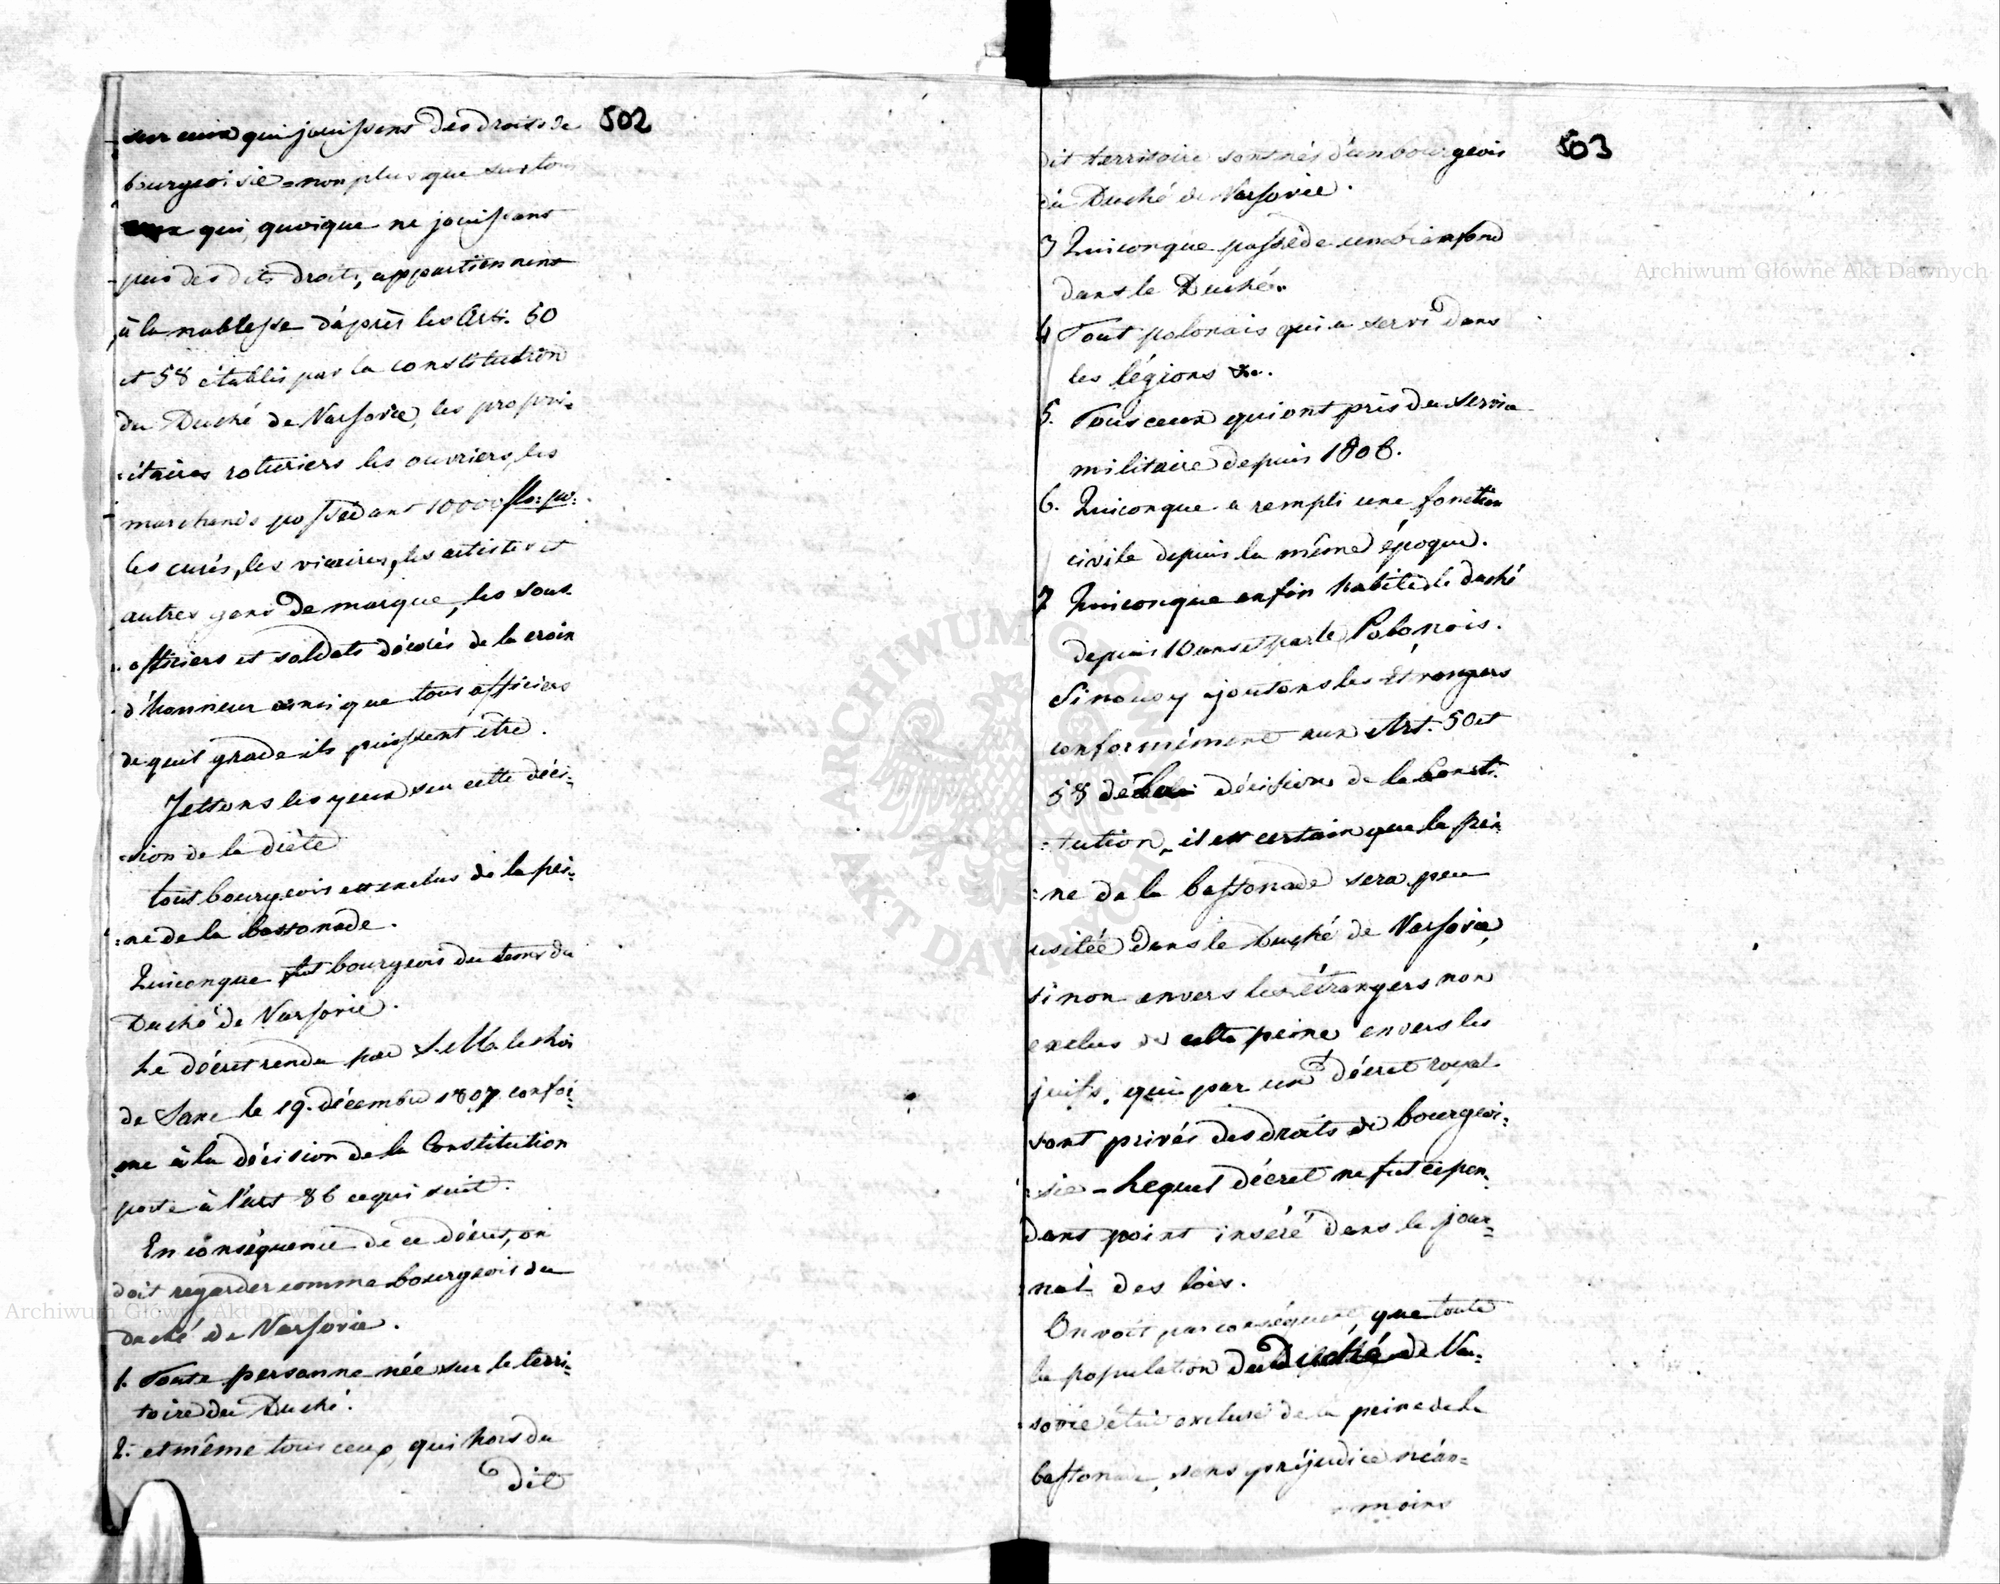 502
sur ceux qui jouissens des droits de
bourgeoisie = non plus que sur tous
ceux qui, quoique ne jouissant
pas des dits droits, appartiennent
à la noblesse d'après les Art. 50
et 58 établis par la constitution
du Duché de Varsovie, les propri-
:étaires roturiers les ouvriers, les
marchands possédant 10000 flo: po:
les curés, les vicaires, les artistes et
autres gens de marque, les sous
officiers et soldats décorés de la croix
d'honneur ainsi que tous officiers
de quel grade ils puissent être.
Jettons les yeux sur cette déci-
-sion de la diète
tout bourgeois est exclus de la pei-
:ne de la bastonade.
Quiconque fut bourgeois du tems du
Duché de Varsovie.
Le décret rendu par S. M. le Roi
de Saxe le 19 décembre 1807 confor-
me à la décision de la Constitution
porte à l'art 86 ce qui suit.
En conséquence de ce décret, on
doit regarder comme bourgeois du
duché de Varsovie.
1. Toute personne née sur le terri-
toire du Duché.
2. et même tous ceux, qui hors du
dit
503
dit territoire sont nés d'un bourgeois
du Duché de Varsovie.
3 Quiconque possède un bien fond
dans le Duché.
4 Tout polonais qui a servi dans
les légions &c.
5. Tous ceux qui ont pris du service
militaire depuis 1806.
6. Quiconque a rempli une fonction
civile depuis la même époque.
7 Quiconque enfin habite le duché
depuis 10 ans et parle Polonois.
Si nous y ajoutons les étrangers
conformément aux Art. 50 et
58 de décision de la Consti-
:tution, il est certain que la pei
:ne de la bastonade sera peu
usitée dans le Duché de Varsovie,
si non envers les étrangers non
exclus de cette peine envers les
juifs, qui par un décret royal
sont privés des droits de bourgeoi-
:sie – Lequel décret ne fut cepen-
dant point inséré dans le jour-
nal des lois.
On voit par conséquent, que toute
la population du Duché de Var-
sovie étoit exclue de la peine de la
bastonade, sans préjudice néan-
moins
Archiwum Główne Akt Dawnych
Archiwum Główne Akt Dawnych
ARCHIWUM GŁÓWNE
AKT DAWNYCH